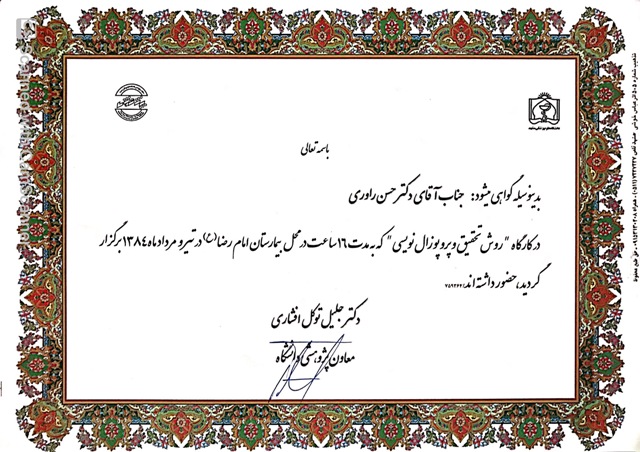 باسمه تعالی
بدینوسیله گواهی میشود: جناب آقای دکتر حسن راوری
در کارگاه "روش تحقیق و پروپوزال نویسی" که به مدت ۱۶ ساعت در محل بیمارستان امام رضا (ع) در تیر و مرداد ماه ۱۳۸۴ برگزار
گردید، حضور داشته اند.
دکتر جلیل توکل افشاری
معاون پژوهشی دانشگاه